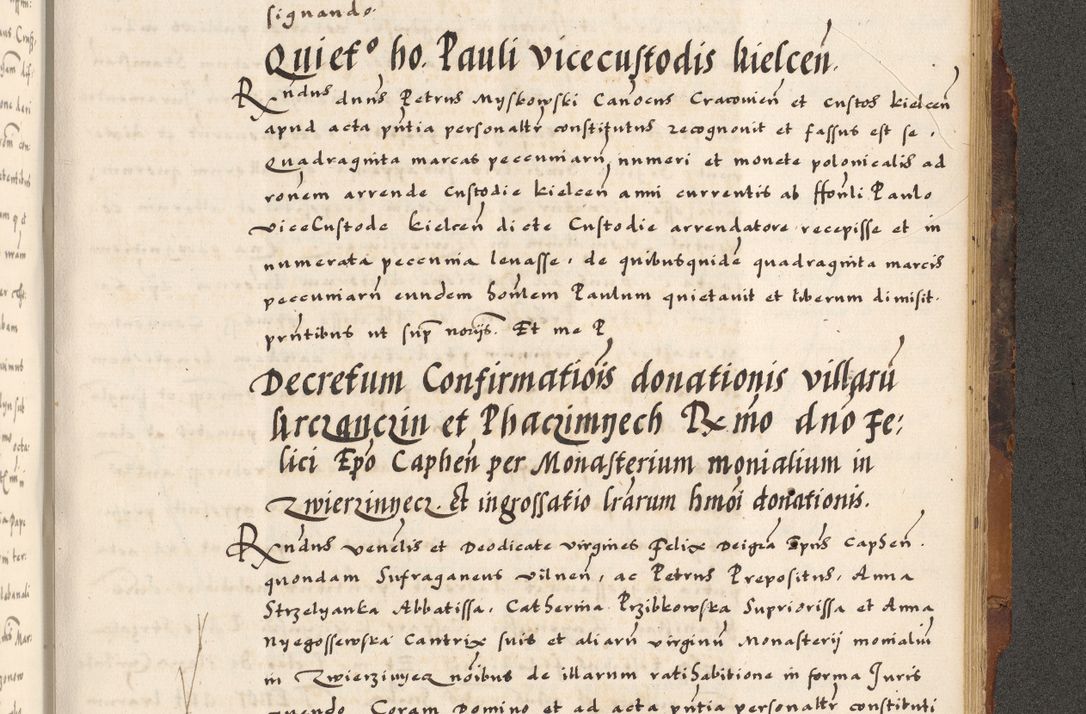 signando.
Quietº ho. Pauli vicecustodis kielceñ.
Rndus dnus Petrus Myskowski Canocus Cracovieñ et Custos kielceñ
apud acta pñtia personaltr constitutus recognovit et fassus est se,
Quadraginta marcas peccuniarũ, numeri et monete polonicalis ad
ronem arrende Custodie kielceñ anni currentis ab Hoñli Paulo
viceCustode kielceñ dicte Custodie arrendatore recepisse et in
numerata peccunia levasse, de quibusquidẽ quadraginta marcis
peccuniarũ eundem hoñlem Paulum quietavit et liberum dimisit.
pñtibus ut supͣ noriis. Et me P
Decretum Confirmatiõis donationis villarũ
Arczanczin et Phaczimyech Rx mo dno Fe:
lici Epõ Capheñ per Monasterium monialium in
Zwierzinyecz. et ingrossatio lrarum hmõi donationis.
Rndus venẽlis et Deodicate virgines Felix Dei gra Epus Capheñ.
quondam Sufraganeus vilneñ, ac Petrus Prepositus, Anna
Strzelyanka Abbatissa, Catherina Przibkowska Supriorissa et Anna
Nyegossewska Cantrix suis et aliarũ virginũ Monasterij monialiũ
in Zwierziniyecz nõibus de illarum ratihabitione in forma Juris
Coram Domino et ad acta pñtia personaltr constituti